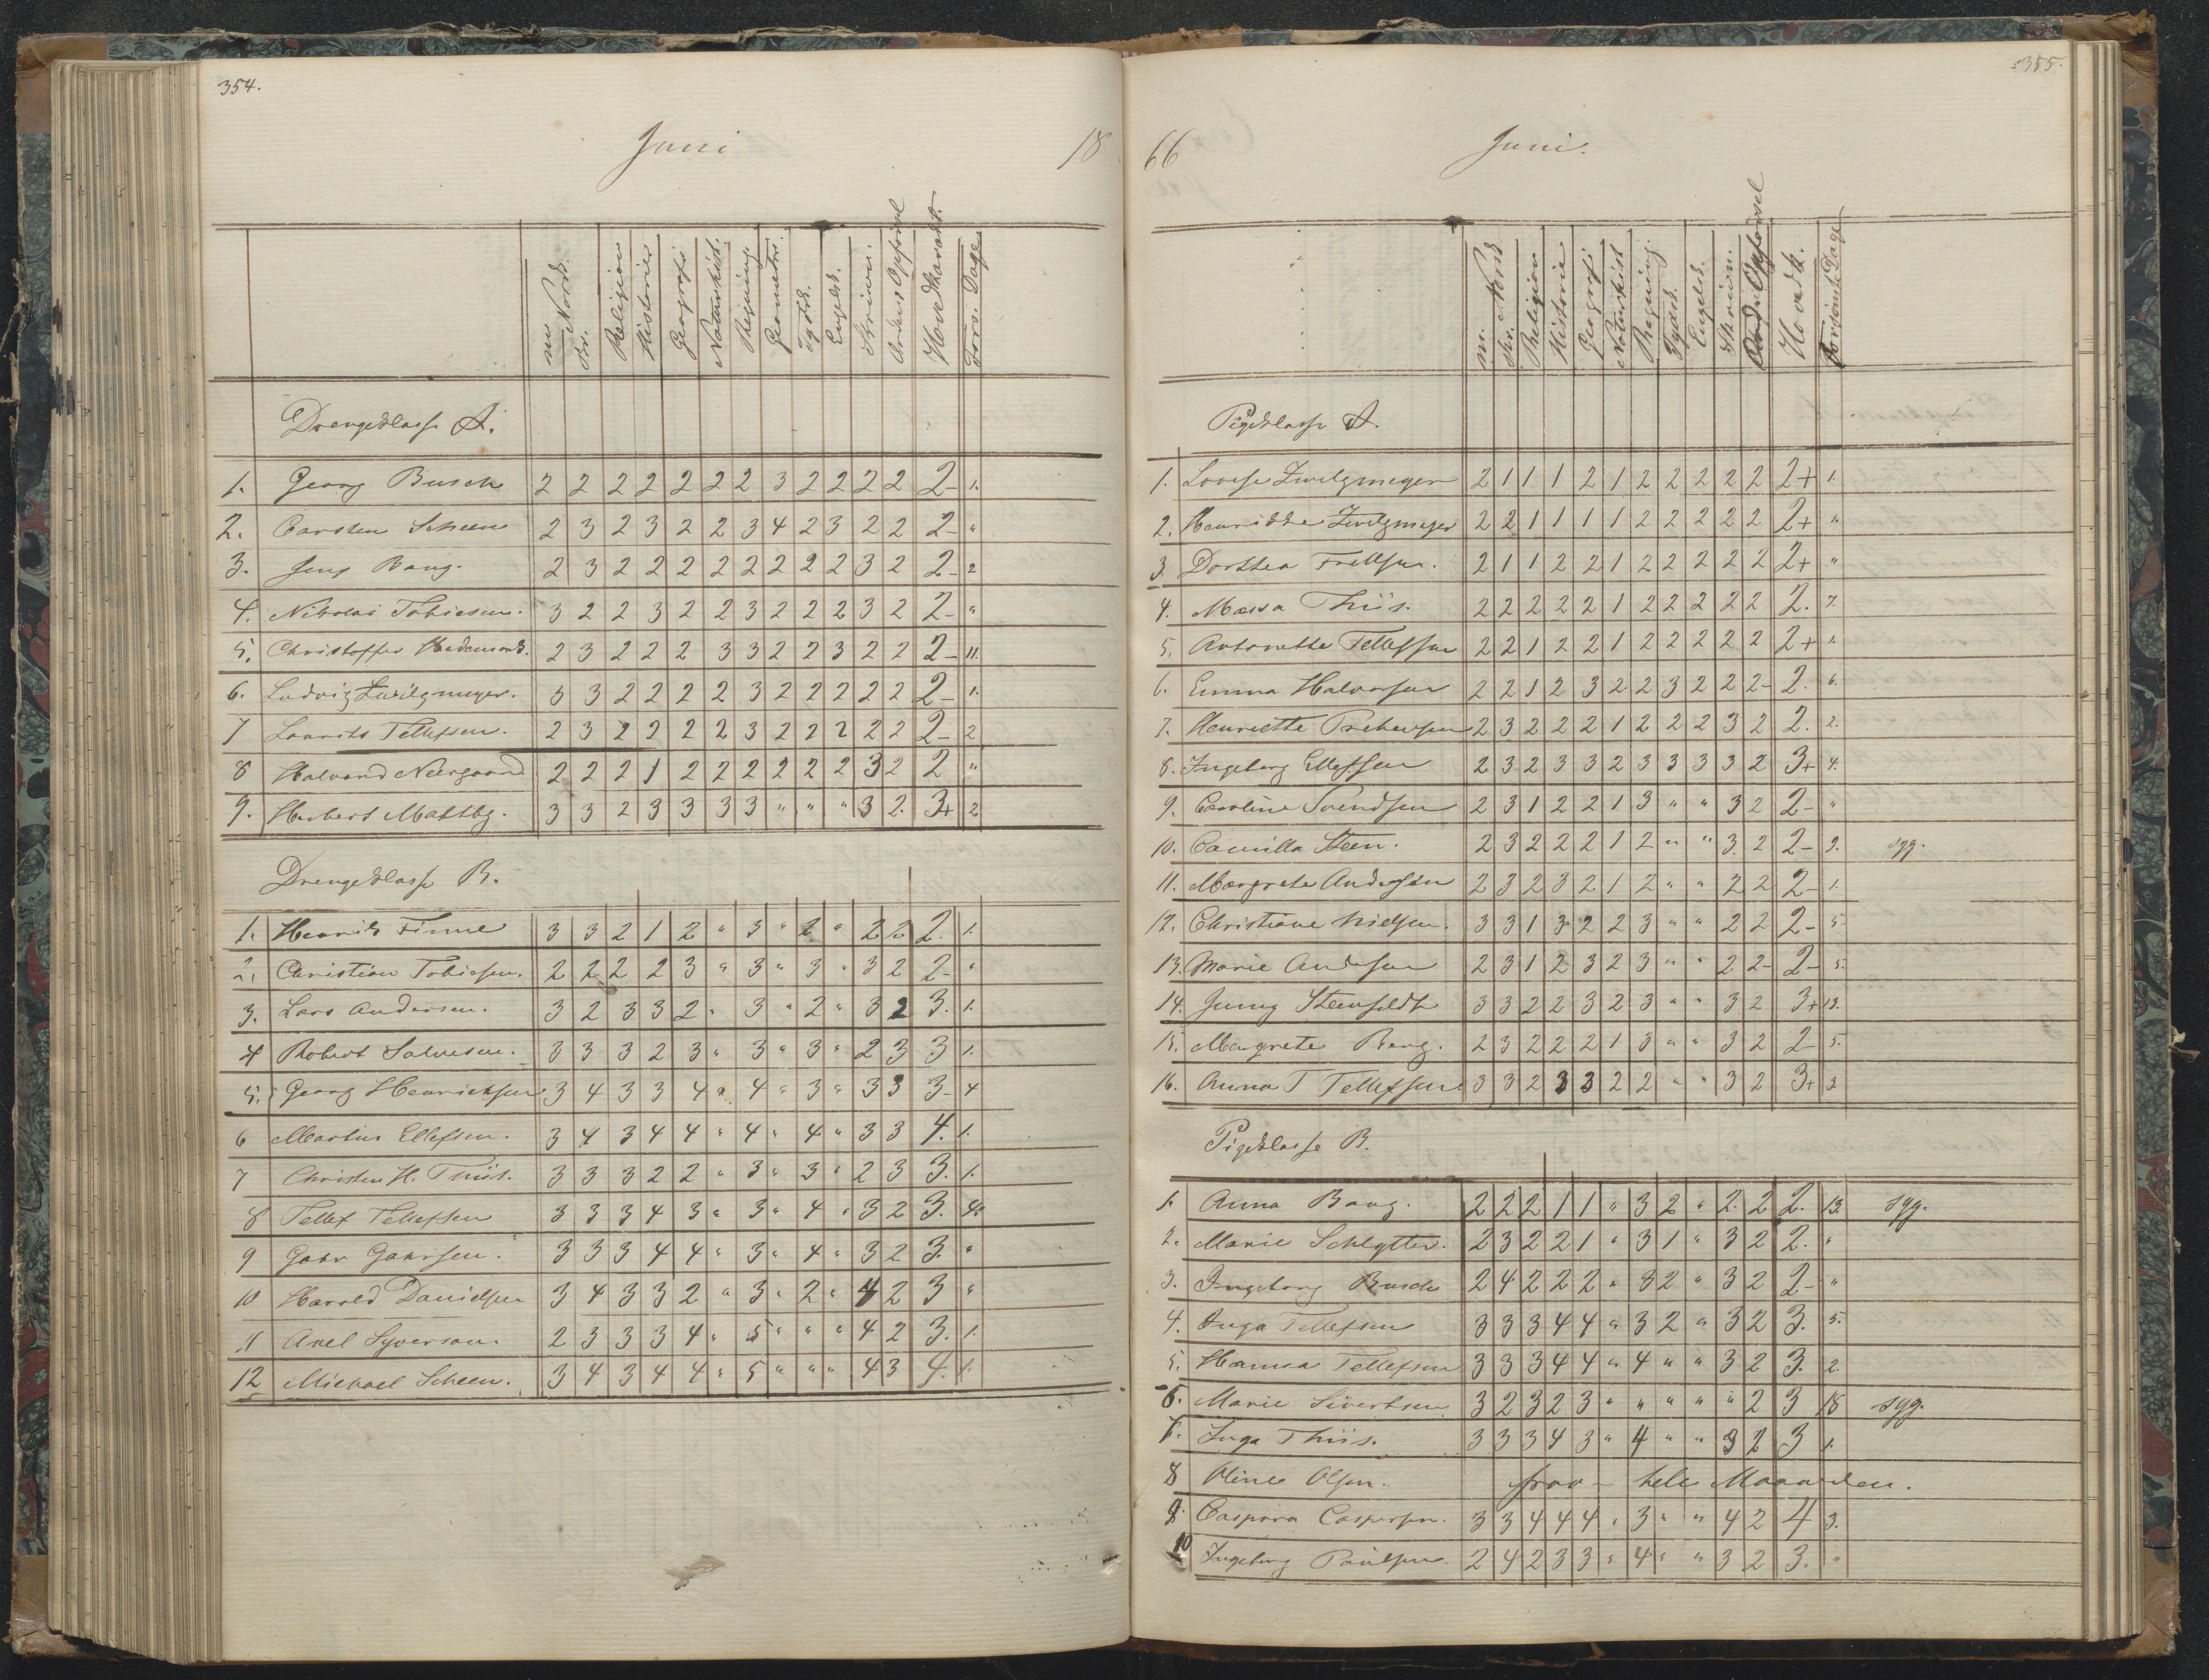 354.
Juni
18
m. Norsk.
skr.
Religion
Historie
Geografi
Naturhist.
Regning.
Geometri.
Tydsk.
Engelsk.
Skrivn.
Orden & Opførsel
Hovedkarakt.
Fors. Dage.
Drengeklasse A.
1. Georg Busch 2 2 2 2 2 2 2 3 2 2 2 2 2- 1.
2. Carsten Scheen 2 3 2 3 2 2 3 4 2 3 2 2 2- "
3. Jens Bang. 2 3 2 2 2 2 2 2 2 2 3 2 2- 2
4. Nikolai Tobiesen. 3 2 2 3 2 2 3 2 2 2 3 2 2- "
5. Christoffer Hedemark. 2 3 2 2 2 3 3 2 2 3 2 2 2- 11.
6. Ludvig Zwilgmeyer. 3 3 2 2 2 2 3 2 2 2 2 2 2- 1.
7 Laurits Tellefsen. 2 3 2 2 2 2 3 2 2 2 2 2 2- 2
8 Halvard Neergaard 2 2 2 1 2 2 2 2 2 2 3 2 2 "
9. Herbert Maltbg. 3 3 2 3 3 3 3 " " " 3 2. 3+ 2
Drengeklasse B.
1. Henrik Finne 3 3 2 1 2 " 3 " 2 " 2 2 2. 1.
2. Christian Tobiesen. 2 2 2 2 3 " 3 " 3 " 3 2 2- "
3. Lars Andersen. 3 2 3 3 2 " 3 " 2 " 3 2 3. 1.
4 Robert Salvesen. 3 3 3 2 3 " 3 " 3 " 2 3 3 1.
5. Georg Henrichsen 3 4 3 3 4 " 4 " 3 " 3 3 3- 4
6 Martin Ellefsen. 3 4 3 4 4 " 4 " 4 " 3 3 4. 1.
7 Christen H. Thiis. 3 3 3 2 2 " 3 " 3 " 2 3 3. 1.
8 Tellef Tellefsen 3 3 3 4 3 " 3 " 4 " 3 2 3. 4.
9 Gahr Gahrsen. 3 3 3 4 4 " 3 " 4 " 3 2 3. "
10 Harald Danielsen 3 4 3 3 2 " 3 " 2 " 4 2 3 "
11 Axel Syverson. 2 3 3 3 4 " 5 " " " 4 2 3. 1.
12 Michael Scheen. 3 4 3 4 4 " 5 " " " 4 3 4. 1.
355.
66
Juni.
m. Norsk
skr.
Religion
Historie
Geografi
Naturhist
Regning.
Tydsk.
Engelsk.
Skrivn.
Orden & Opførsel
Hovedk.
Forsømte Dage
Pigeklasse A.
1. Lovise Zwilgmeyer 2 1 1 1 2 1 2 2 2 2 2 2+ 1.
2. Henrikke Zwilgmeyer 2 2 1 1 1 1 2 2 2 2 2 2+ "
3. Dorthea Frellsen. 2 1 1 2 2 1 2 2 2 2 2 2+ "
4. Massa Thiis. 2 2 2 2 2 1 2 2 2 2 2 2. 7.
5. Antonette Tellefsen 2 2 1 2 2 1 2 2 2 2 2 2+ 1.
6. Emma Halvorsen 2 2 1 2 3 2 2 3 2 2 2- 2. 6.
7. Henriette Prebensen 2 3 2 2 2 1 2 2 2 3 2 2. 2.
8. Ingeborg Ellefsen 2 3 2 3 3 2 3 3 3 3 2 3+ 4.
9. Caroline Svendsen 2 3 1 2 2 1 3 " " 3 2 2- "
10. Camilla Steen. 2 3 2 2 2 1 2 " " 3 2 2- 9. syg.
11. Margrete Andersen 2 3 2 3 2 1 2 " " 2 2 2- 1.
12. Christiane Nielsen. 3 3 1 3 2 2 3 " " 2 2 2- 5.
13. Marie Andersen 2 3 1 2 3 2 3 " " 2 2- 2- 5.
14. Jenny Steenfeldt 3 3 2 2 3 2 3 " " 3 2 3+ 13.
15. Margrete Berg. 2 3 2 2 2 1 3 " " 3 2 2- 5.
16. Anna T Tellefsen. 3 3 2 3 3 2 2 " " 3 2 3+ 3.
Pigeklasse B.
1. Anna Bang. 2 2 2 1 1 " 3 2 " 2. 2 2. 13. syg.
2. Marie Schlytter. 2 3 2 2 1 " 3 1 " 3 2 2. "
3. Ingeborg Busch 2 4 2 2 2 " 3 2 " 3 2 2- "
4. Inga Tellefsen 3 3 3 4 4 " 3 2 " 3 2 3. 5.
5. Hanna Tellefsen 3 3 3 4 4 " 4 " " 3 2 3. 2.
6. Marie Sivertsen 3 2 3 2 3 " " " " " 2 3 18 syg.
7. Inga Thiis. 3 3 3 4 3 " 4 " " 3 2 3 1.
8 Oline Olsen. frav- hele Maaneden.
9. Caspara Caspersen. 3 3 4 4 4 " 3 " " 4 2 4 3.
10 Ingeborg Paulsen. 2 4 2 3 3 " 4 " " 3 2 3. "